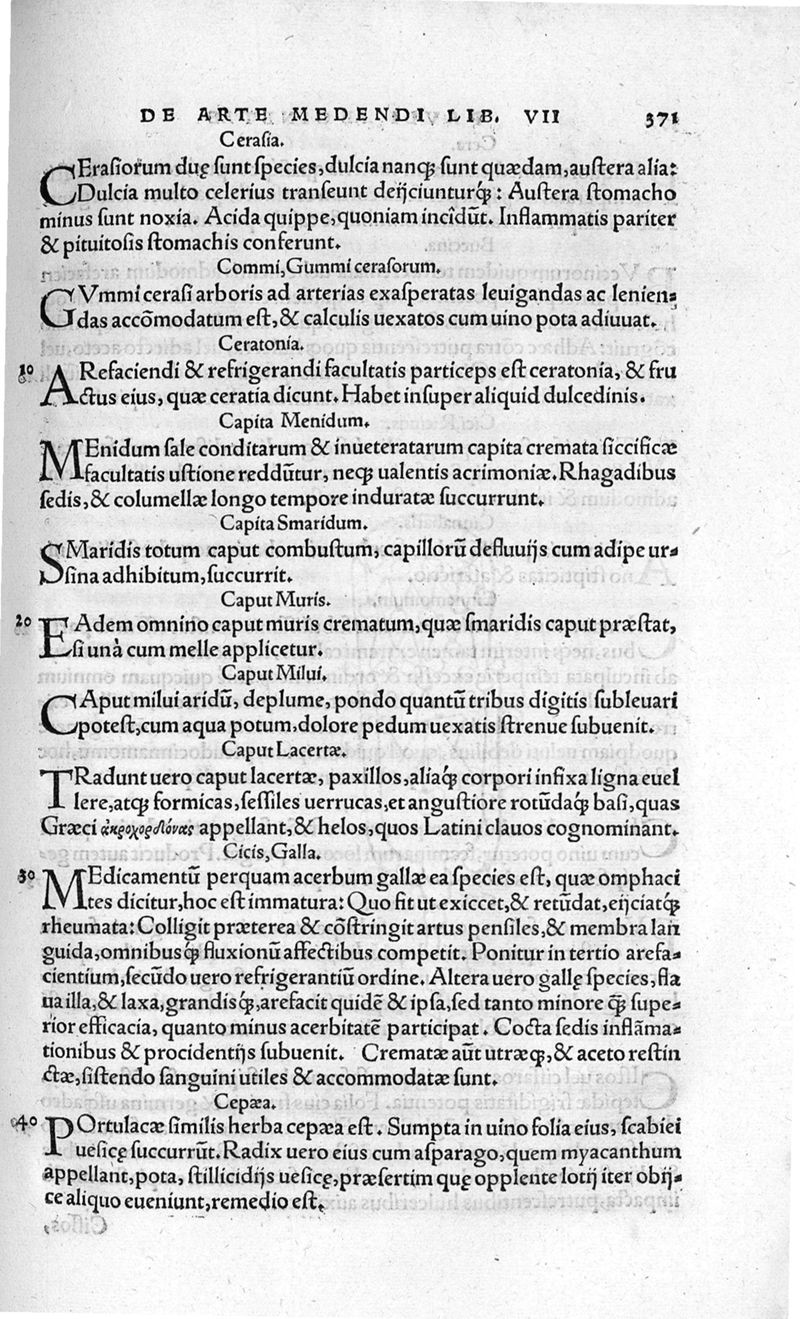 DE ARTE MEDENDI LIB. VII 371
Cerasia.
CErasiorum duę sunt species, dulcia nanq̃ sunt quædam, austera alia:
Dulcia multo celerius transeunt deijciunturq̃: Austera stomacho
minus sunt noxia. Acida quippe, quoniam incîdũt. Inflammatis pariter
& pituitosis stomachis conferunt.
Commi, Gummi cerasorum.
GVmmi cerasi arboris ad arterias exasperatas leuigandas ac lenien-
das accõmodatum est, & calculis uexatos cum uino pota adiuuat.
Ceratonia.
10 ARefaciendi & refrigerandi facultatis particeps est ceratonia, & fru
ctus eius, quæ ceratia dicunt. Habet insuper aliquid dulcedinis.
Capita Menidum.
MEnidum sale conditarum & inueteratarum capita cremata siccificæ
facultatis ustione reddũtur, neq̃ ualentis acrimoniæ. Rhagadibus
sedis, & columellæ longo tempore induratæ succurrunt.
Capita Smaridum.
SMaridis totum caput combustum, capillorũ defluuijs cum adipe ur-
sina adhibitum, succurrit.
Caput Muris.
20 EAdem omnino caput muris crematum, quæ smaridis caput præstat,
si unà cum melle applicetur.
Caput Milui.
CAput milui aridũ, deplume, pondo quantũ tribus digitis subleuari
potest, cum aqua potum, dolore pedum uexatis strenue subuenit.
Caput Lacertæ.
TRadunt uero caput lacertæ, paxillos, aliaq̃ corpori infixa ligna euel
lere, atq̃ formicas, sessiles uerrucas, et angustiore rotũdaq̃ basi, quas
Græci ἀκροχορδόνας appellant, & helos, quos Latini clauos cognominant.
Cicis, Galla.
30 MEdicamentũ perquam acerbum gallæ ea species est, quæ omphaci
tes dicitur, hoc est immatura: Quo fit ut exiccet, & retũdat, eijciatq̃
rheumata: Colligit præterea & cõstringit artus pensiles, & membra lan
guida, omnibusq̃ fluxionũ affectibus competit. Ponitur in tertio arefa-
cientium, secũdo uero refrigerantiũ ordine. Altera uero gallę species, fla
ua illa, & laxa, grandisq̃, arefacit quidẽ & ipsa, sed tanto minore q̃ supe-
rior efficacia, quanto minus acerbitatẽ participat. Cocta sedis inflãma-
tionibus & procidentijs subuenit. Crematæ aũt utræq̃, & aceto restin
ctæ, sistendo sanguini utiles & accommodatæ sunt.
Cepæa.
40 POrtulacæ similis herba cepæa est. Sumpta in uino folia eius, scabiei
uesicę succurrũt. Radix uero eius cum asparago, quem myacanthum
appellant, pota, stillicidijs uesicę, præsertim quę opplente lotij iter obij-
ce aliquo eueniunt, remedio est.